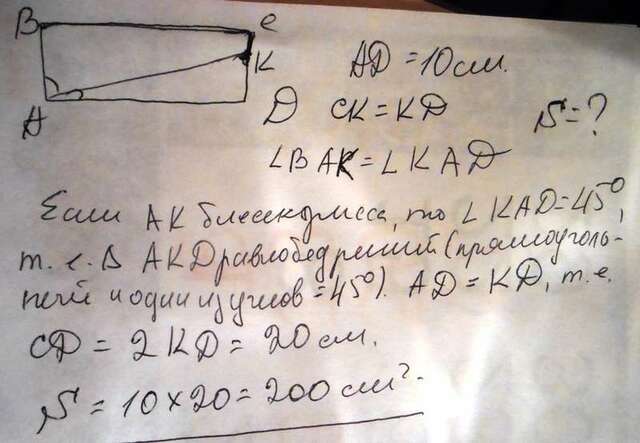 B C
K
A D
AD = 10 см.
CK = KD
S = ?
∠BAK = ∠KAD
Если AK биссектриса, то ∠KAD = 45°,
т. е. В AKD равнобедренный (прямоуголь-
ный и один из углов = 45°). AD = KD, т. е.
CD = 2 KD = 20 см.
S = 10 × 20 = 200 см².